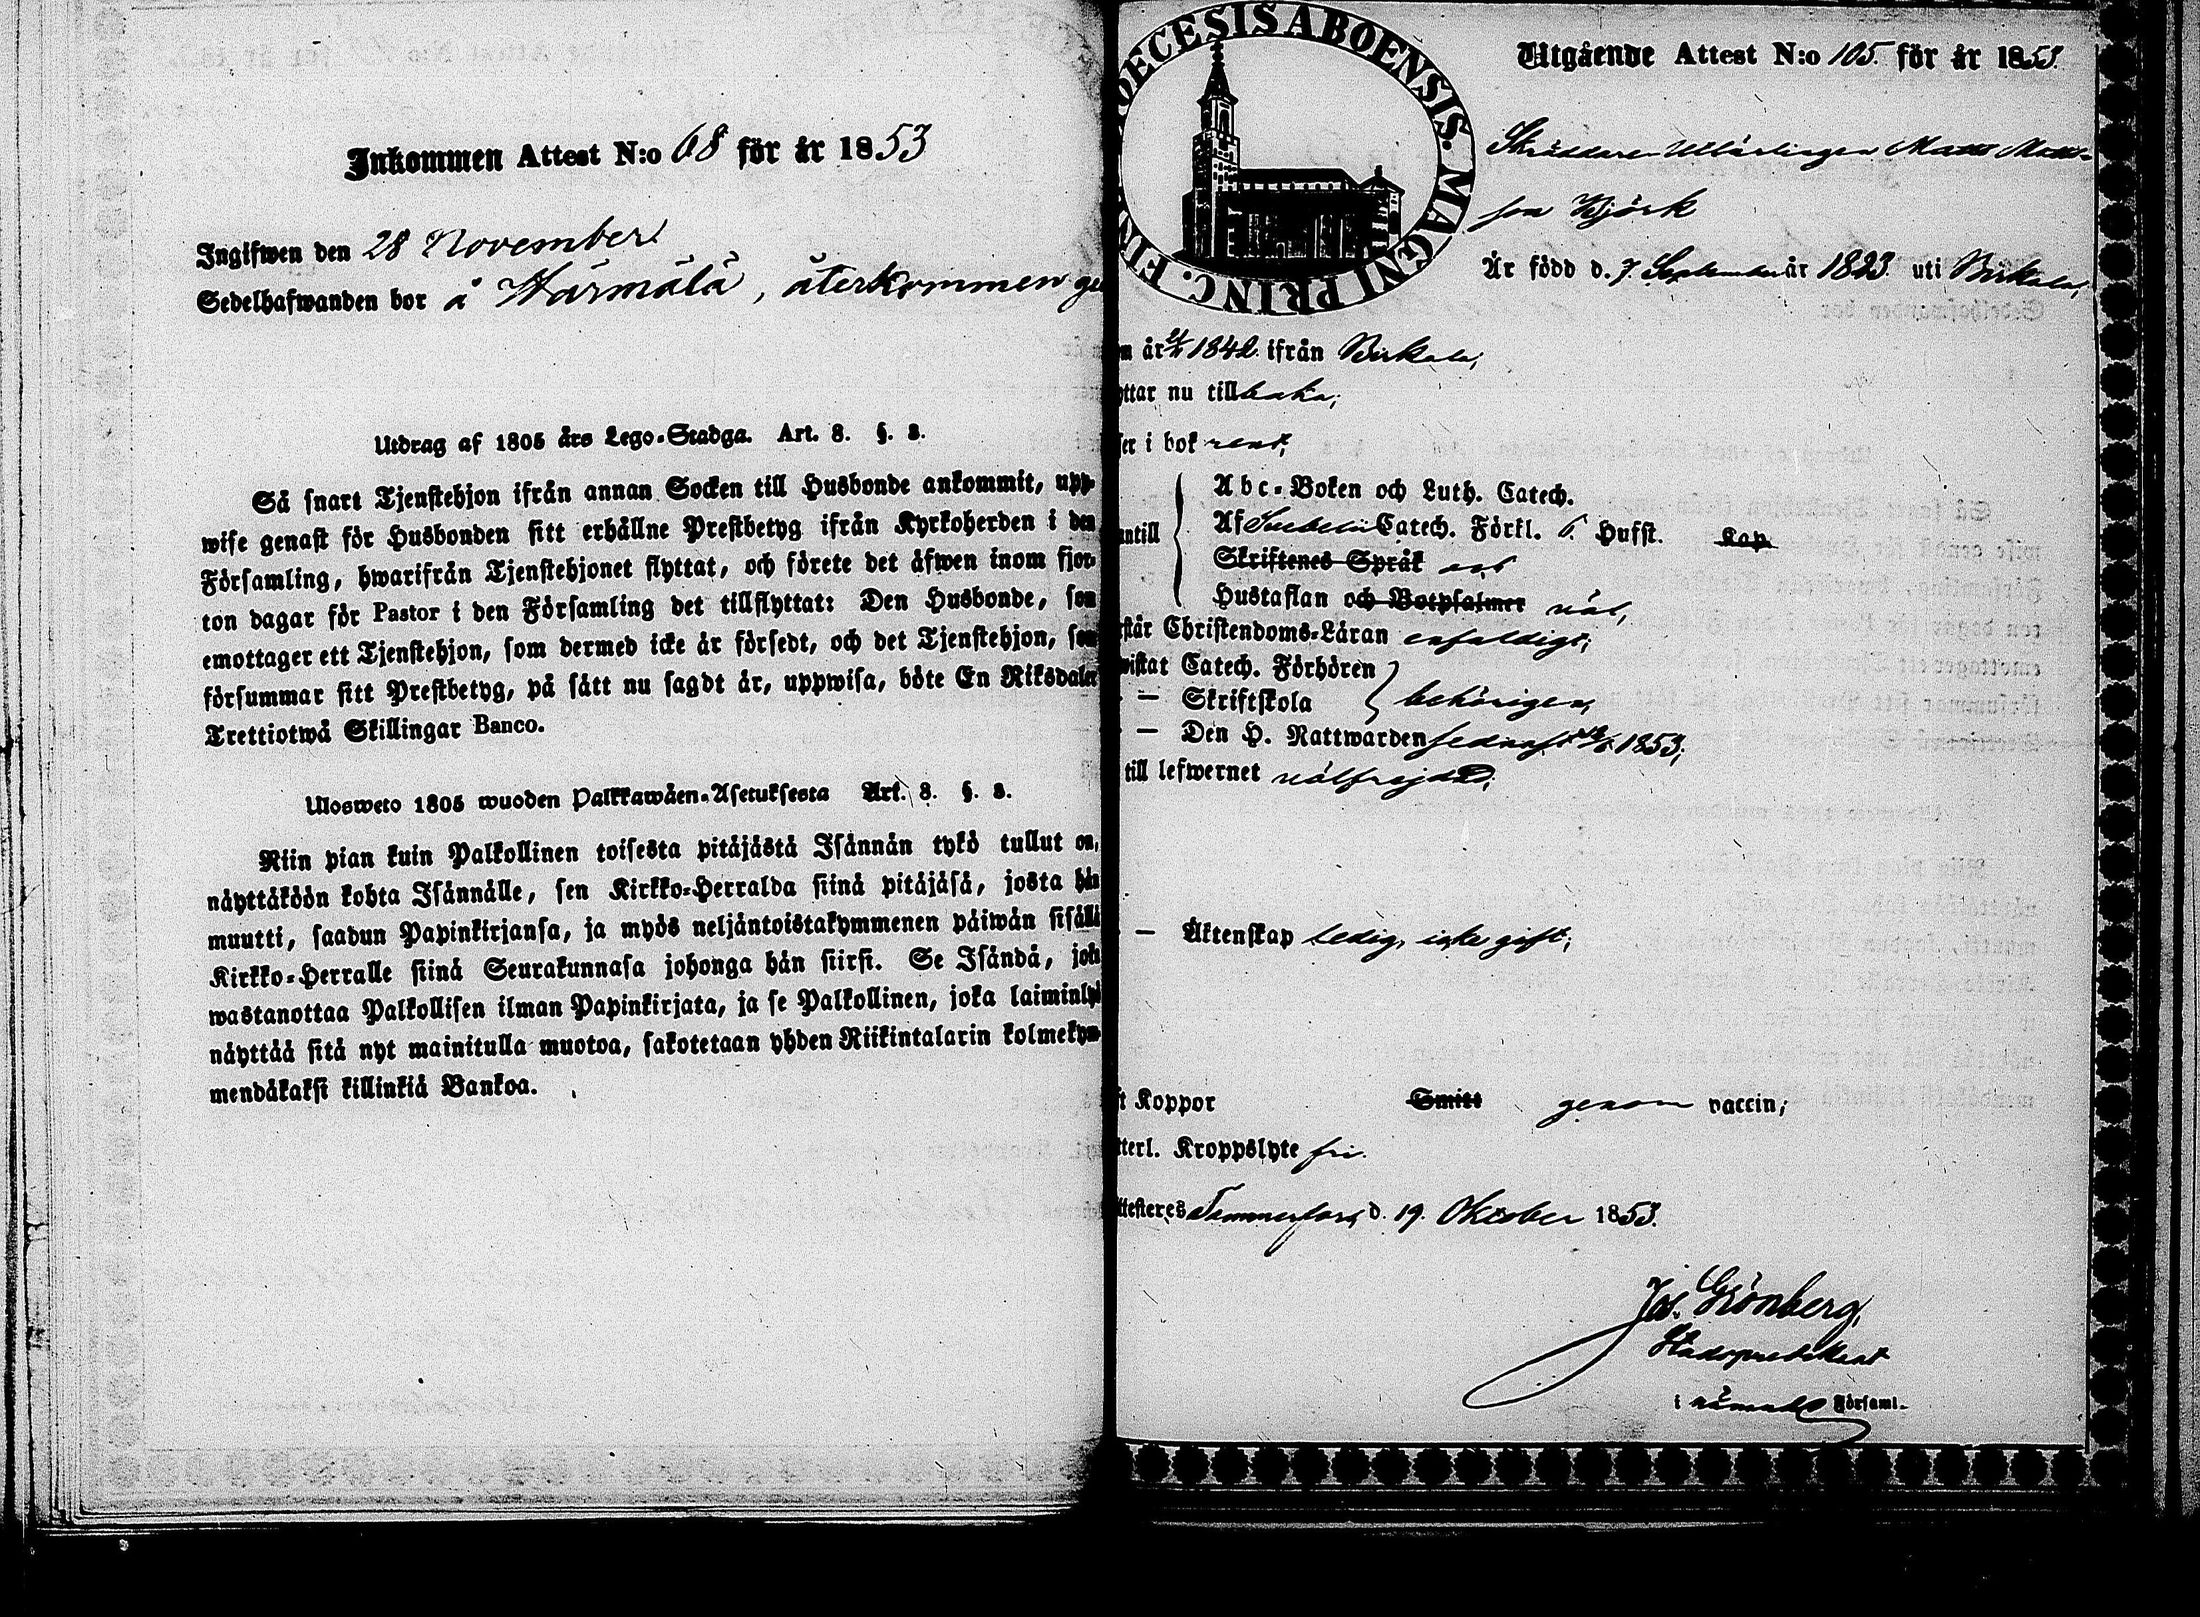 Inkommen Attest N:o 68 för år 1853
Ingifwen den 28 November
Sedelhafwanden bor å Härmälä, återkommen ge
Utdrag af 1805 års Lego-Stadga. Art. 8. §. 3.
Så snart Tjenstehjon ifrån annan Socken till Husbonde ankommit, upp-
wise genast för Husbonden sitt erhållne Prestbetyg ifrån Kyrkoherden i den
Församling, hwarifrån Tjenstehjonet flyttat, och förete det äfwen inom fjor-
ton dagar för Pastor i den Församling det tillflyttat: Den Husbonde, som
emottager ett Tjenstehjon, som dermed icke är försedt, och det Tjenstehjon, som
försummar sitt Prestbetyg, på sätt nu sagdt är, uppwisa, böte En Riksdaler
Trettiotwå Skillingar Banco.
Ulosweto 1805 wuoden Palkkawäen-Asetuksesta Art. 8. §. 3.
Niin pian kuin Palkollinen toisesta pitäjästä Isännän tykö tullut on,
näyttäköön kohta Isännälle, sen Kirkko-Herralda siinä pitäjäsä, josta hän
muutti, saadun Papinkirjansa, ja myös neljäntoistakymmenen päiwän sisälli
Kirkko-Herralle siinä Seurakunnasa johonga hän siirsi. Se Isändä, joka
wastanottaa Palkollisen ilman Papinkirjata, ja se Palkollinen, joka laiminlyö
näyttää sitä nyt mainitulla muotoa, sakotetaan yhden Riikintalarin kolmekym-
mendäkaksi killinkiä Bankoa.
DECESIS ABOENSIS. MAGNI PRINC. FIN
Utgående Attest N:o 105. för år 1853.
Skräddare Utlärlingen Matts Matts-
son Björk
Är född d. 7. September år 1823. uti Birkala,
n år 1842. ifrån Birkala,
yttar nu tillbaka;
ser i bok rent,
antill
Abc-Boken och Luth. Catech.
Af Svebelii Catech. Förkl. 6. Hufst. Kap
Skriftenes Språk
Hustaflan och Botpsalmer väl,
rstår Christendoms-Läran enfaldigt;
wistat Catech. Förhören
— Skriftskola behörigen,
— Den H. Nattwarden sednast 1853;
till lefwernet välfrejdad;
— Äktenskap ledig, icke gift;
ft Koppor Smitt genom vaccin;
tterl. Kroppslyte fri.
ttesteres Tammerfors, d. 19. Oktober 1853.
Jos. Grönberg,
Stadspredikant
i nämnde Församl.